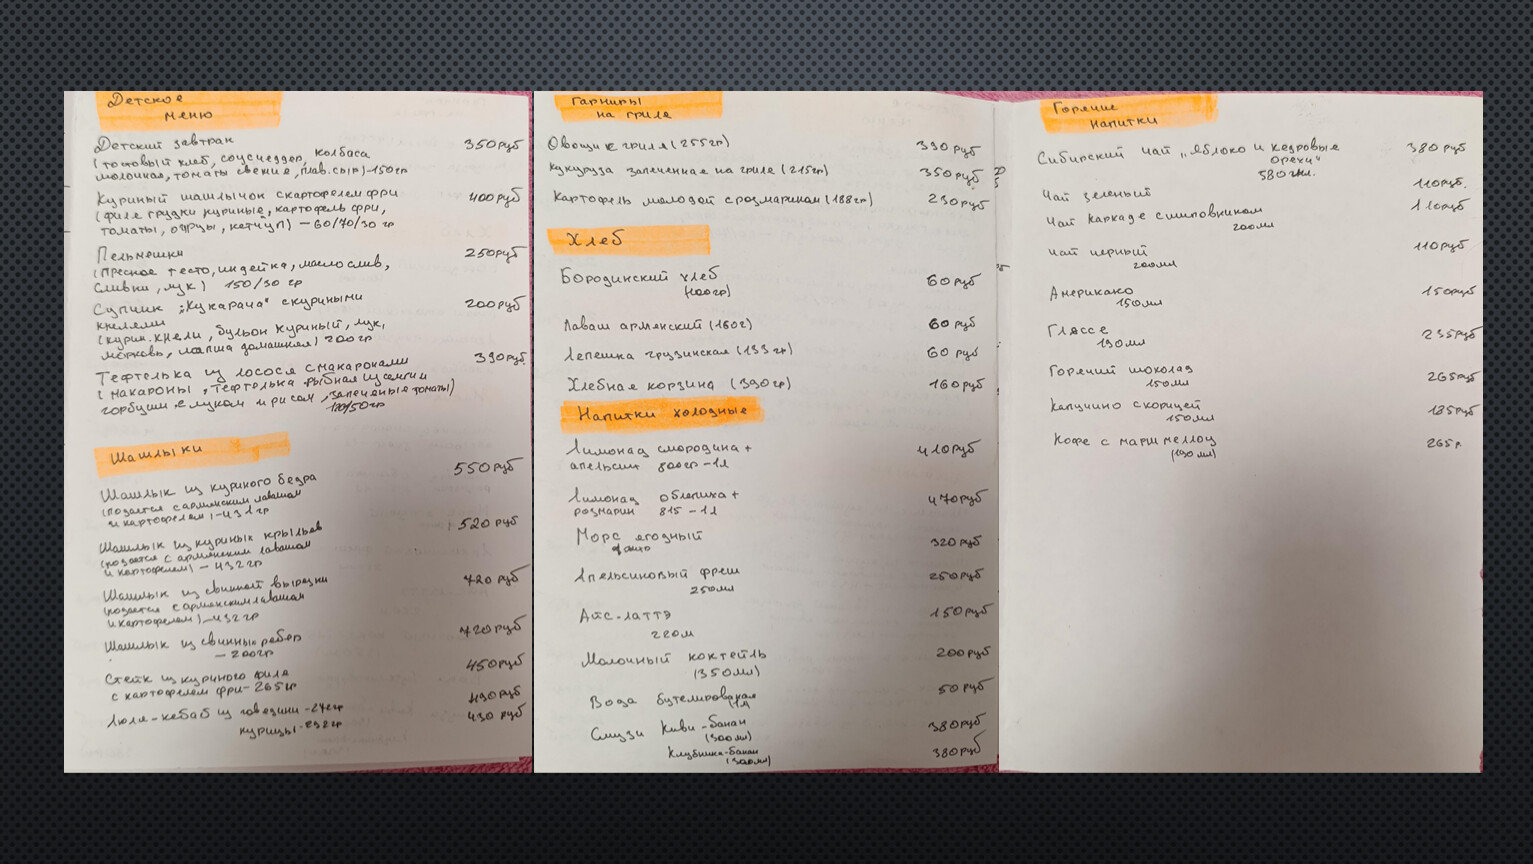 Детское
меню
Детский завтрак 350руб
(тостовый хлеб, соус чеддер, колбаса
молочная, томаты свежие, плав. сыр)-150гр
Куриный шашлычок с картофелем фри 400руб
(филе грудки куриные, картофель фри,
томаты, огурцы, кетчуп) - 60/70/30 гр
Пельмешки 250руб
(пресное тесто, индейка, масло слив,
сливки, лук) 150/30 гр
Супчик "Кукарача" с куриными 200руб
кнелями
(курин. кнели, бульон куриный, лук,
морковь, лапша домашняя) 200гр
Тефтелька из лосося с макаронами 390руб
(макароны, тефтелька рыбная из семги и
горбуши с луком и рисом, запеченные томаты)
120/50гр
Шашлыки
Шашлык из куриного бедра 550руб
(подается с армянским лавашом
и картофелем) - 431гр
Шашлык из куриных крыльев 520руб
(подается с армянским лавашом
и картофелем) - 432гр
Шашлык из свиной вырезки 720руб
(подается с армянским лавашом
и картофелем) - 432гр
Шашлык из свиных ребер 720руб
- 200гр
Стейк из куриного филе 450руб
с картофелем фри - 265гр
Люля-кебаб из говядины - 242гр 490руб
курицы - 232гр 430руб
Гарниры
на гриле
Овощи с гриля (255гр) 390руб
Кукуруза запеченная на гриле (215гр) 350руб
Картофель молодой с розмарином (188г) 230руб
Хлеб
Бородинский хлеб 60руб
(100гр)
Лаваш армянский (160г) 60руб
Лепешка грузинская (133гр) 60руб
Хлебная корзина (390гр) 160руб
Напитки холодные
Лимонад смородина + 410руб
апельсин 800гр - 1л
Лимонад облепиха + 470руб
розмарин 815 - 1л
Морс ягодный 320руб
Апельсиновый фреш 250руб
250мл
Айс-латтэ 150руб
220м
Молочный коктейль 200руб
(350мл)
Вода бутелированая 50руб
(1л)
Смузи Киви-банан 380руб
(300мл)
Клубника-банан 380руб
(300мл)
Горячие
напитки
Сибирский чай "Яблоко и кедровые 380руб
орехи"
580мл.
Чай зеленый 110руб.
Чай каркаде с шиповником 110руб
200мл
Чай черный 110руб
200мл
Американо 150руб
150мл
Глясе 235руб
190мл
Горячий шоколад 265руб
150мл
Капучино с корицей 185руб
150мл
Кофе с маршмеллоу 265р.
(190мл)